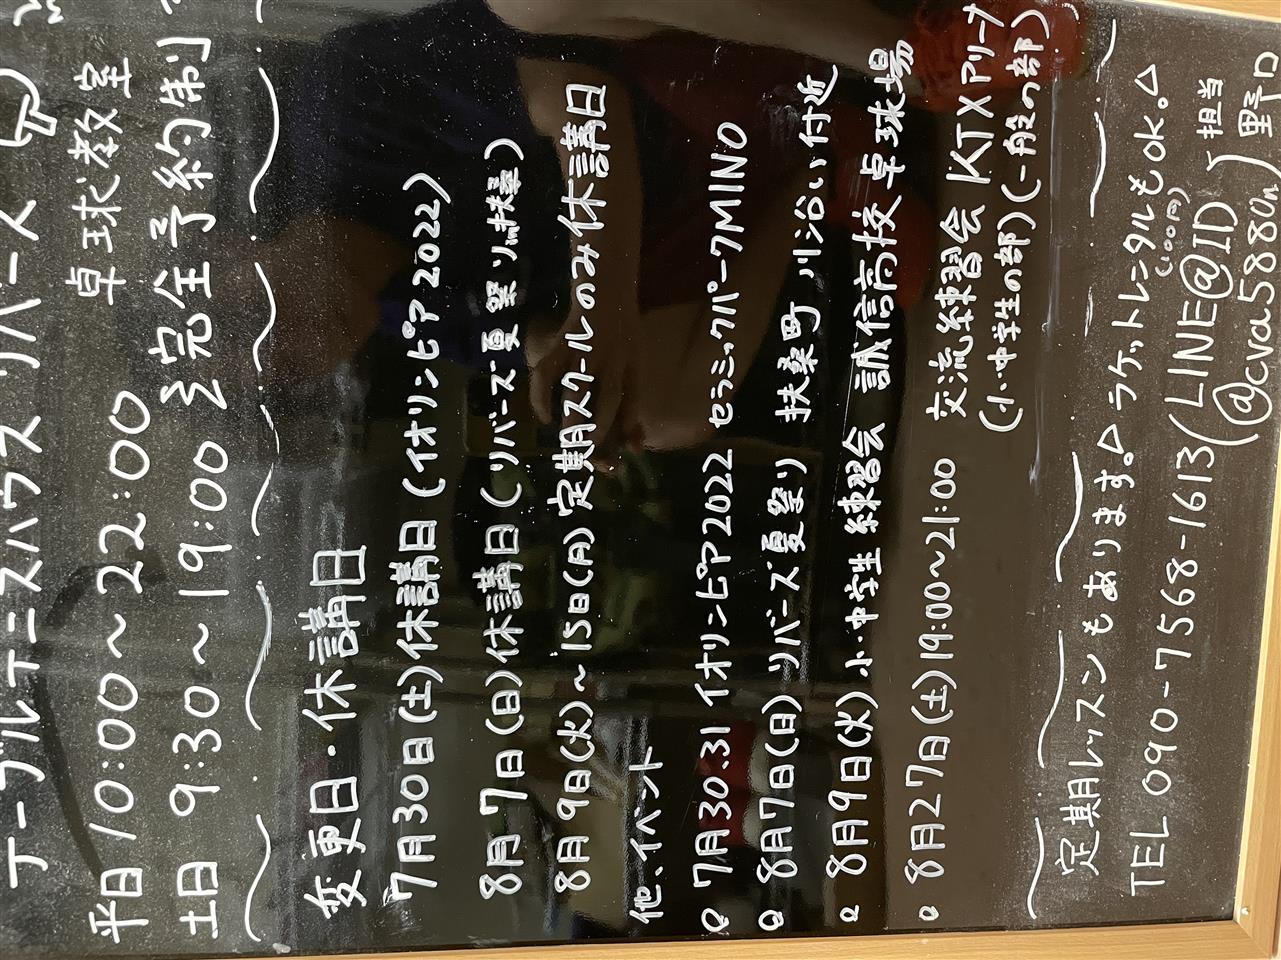 テーブルテニスハウス リバース
平日 10:00～22:00 卓球教室
土日 9:30～19:00 完全予約制
変更日・休講日
7月30日(土)休講日(イオリンピア2022)
8月7日(日)休講日(リバーズ夏祭りin扶桑)
8月9日(火)～15日(月)定期スクールのみ休講日
他、イベント
7月30.31 イオリンピア2022 セラミックパークMINO
8月7日(日)リバーズ夏祭り 扶桑町 川沿い付近
8月9日(火)小・中学生練習会 誠信高校卓球場
8月27日(土)19:00～21:00 交流練習会 KTXアリーナ
(小・中学生の部)(一般の部)
定期レッスンもあります。△ラケットレンタルもOK。△
(100円)
TEL 090-7568-1613(LINE@ID 担当
@cva5880n) 野口